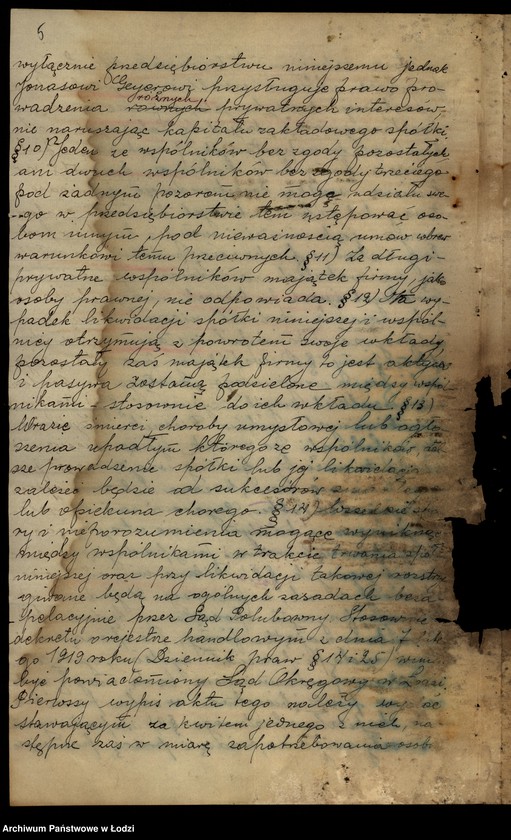 5
wyłącznie przedsiębiorstwu niniejszemu jednak
Jonasowi Geyerowi przysługuje prawo pro-
różnych
wadzenia prywatnych interesów,
nie naruszając kapitału zakładowego spółki.
§ 10) Jeden ze wspólników bez zgody pozostałych
ani dwuch wspólników bez zgody trzeciego
pod żadnym pozorem nie mogą udziału swe-
go w przedsiębiorstwie tem ustępować oso-
bom innym, pod nieważnością umów wbrew
warunkowi temu przeciwnych. § 11) Za długi
prywatne wspólników majątek firmy, jako
osoby prawnej, nie odpowiada. § 12) Na wy-
padek likwidacji spółki niniejszej i wspól-
nicy otrzymują z powrotem swoje wkłady
pozostały zaś majątek firmy to jest aktywa
i pasywa zostaną podzielone między wspól-
nikami stosownie do ich wkładu. § 13)
W razie śmierci choroby umysłowej lub ogło-
szenia upadłym którego ze wspólników, dal-
sze prowadzenie spółki lub jej likwidacja
zależeć będzie od sukcesorów
lub opiekuna chorego. § 14)
ry i nieporozumienia mogące wyniknąć
między wspólnikami w trakcie trwania spółki
niniejszej oraz przy likwidacji takowej rozstrzy-
gane będą na ogólnych zasadach beza-
pelacyjnie przez Sąd Polubowny. Stosownie
dekretu o rejestrze handlowym z dnia 7
go 1919 roku (Dziennik praw § 14 i 25)
powiadomiony Sąd Okręgowy w Łodzi.
Pierwszy wypis aktu tego należy wydać
stawającym za kwitem jednego z nich, na-
stępne zaś w miarę zapotrzebowania osob
Archiwum Państwowe w Łodzi